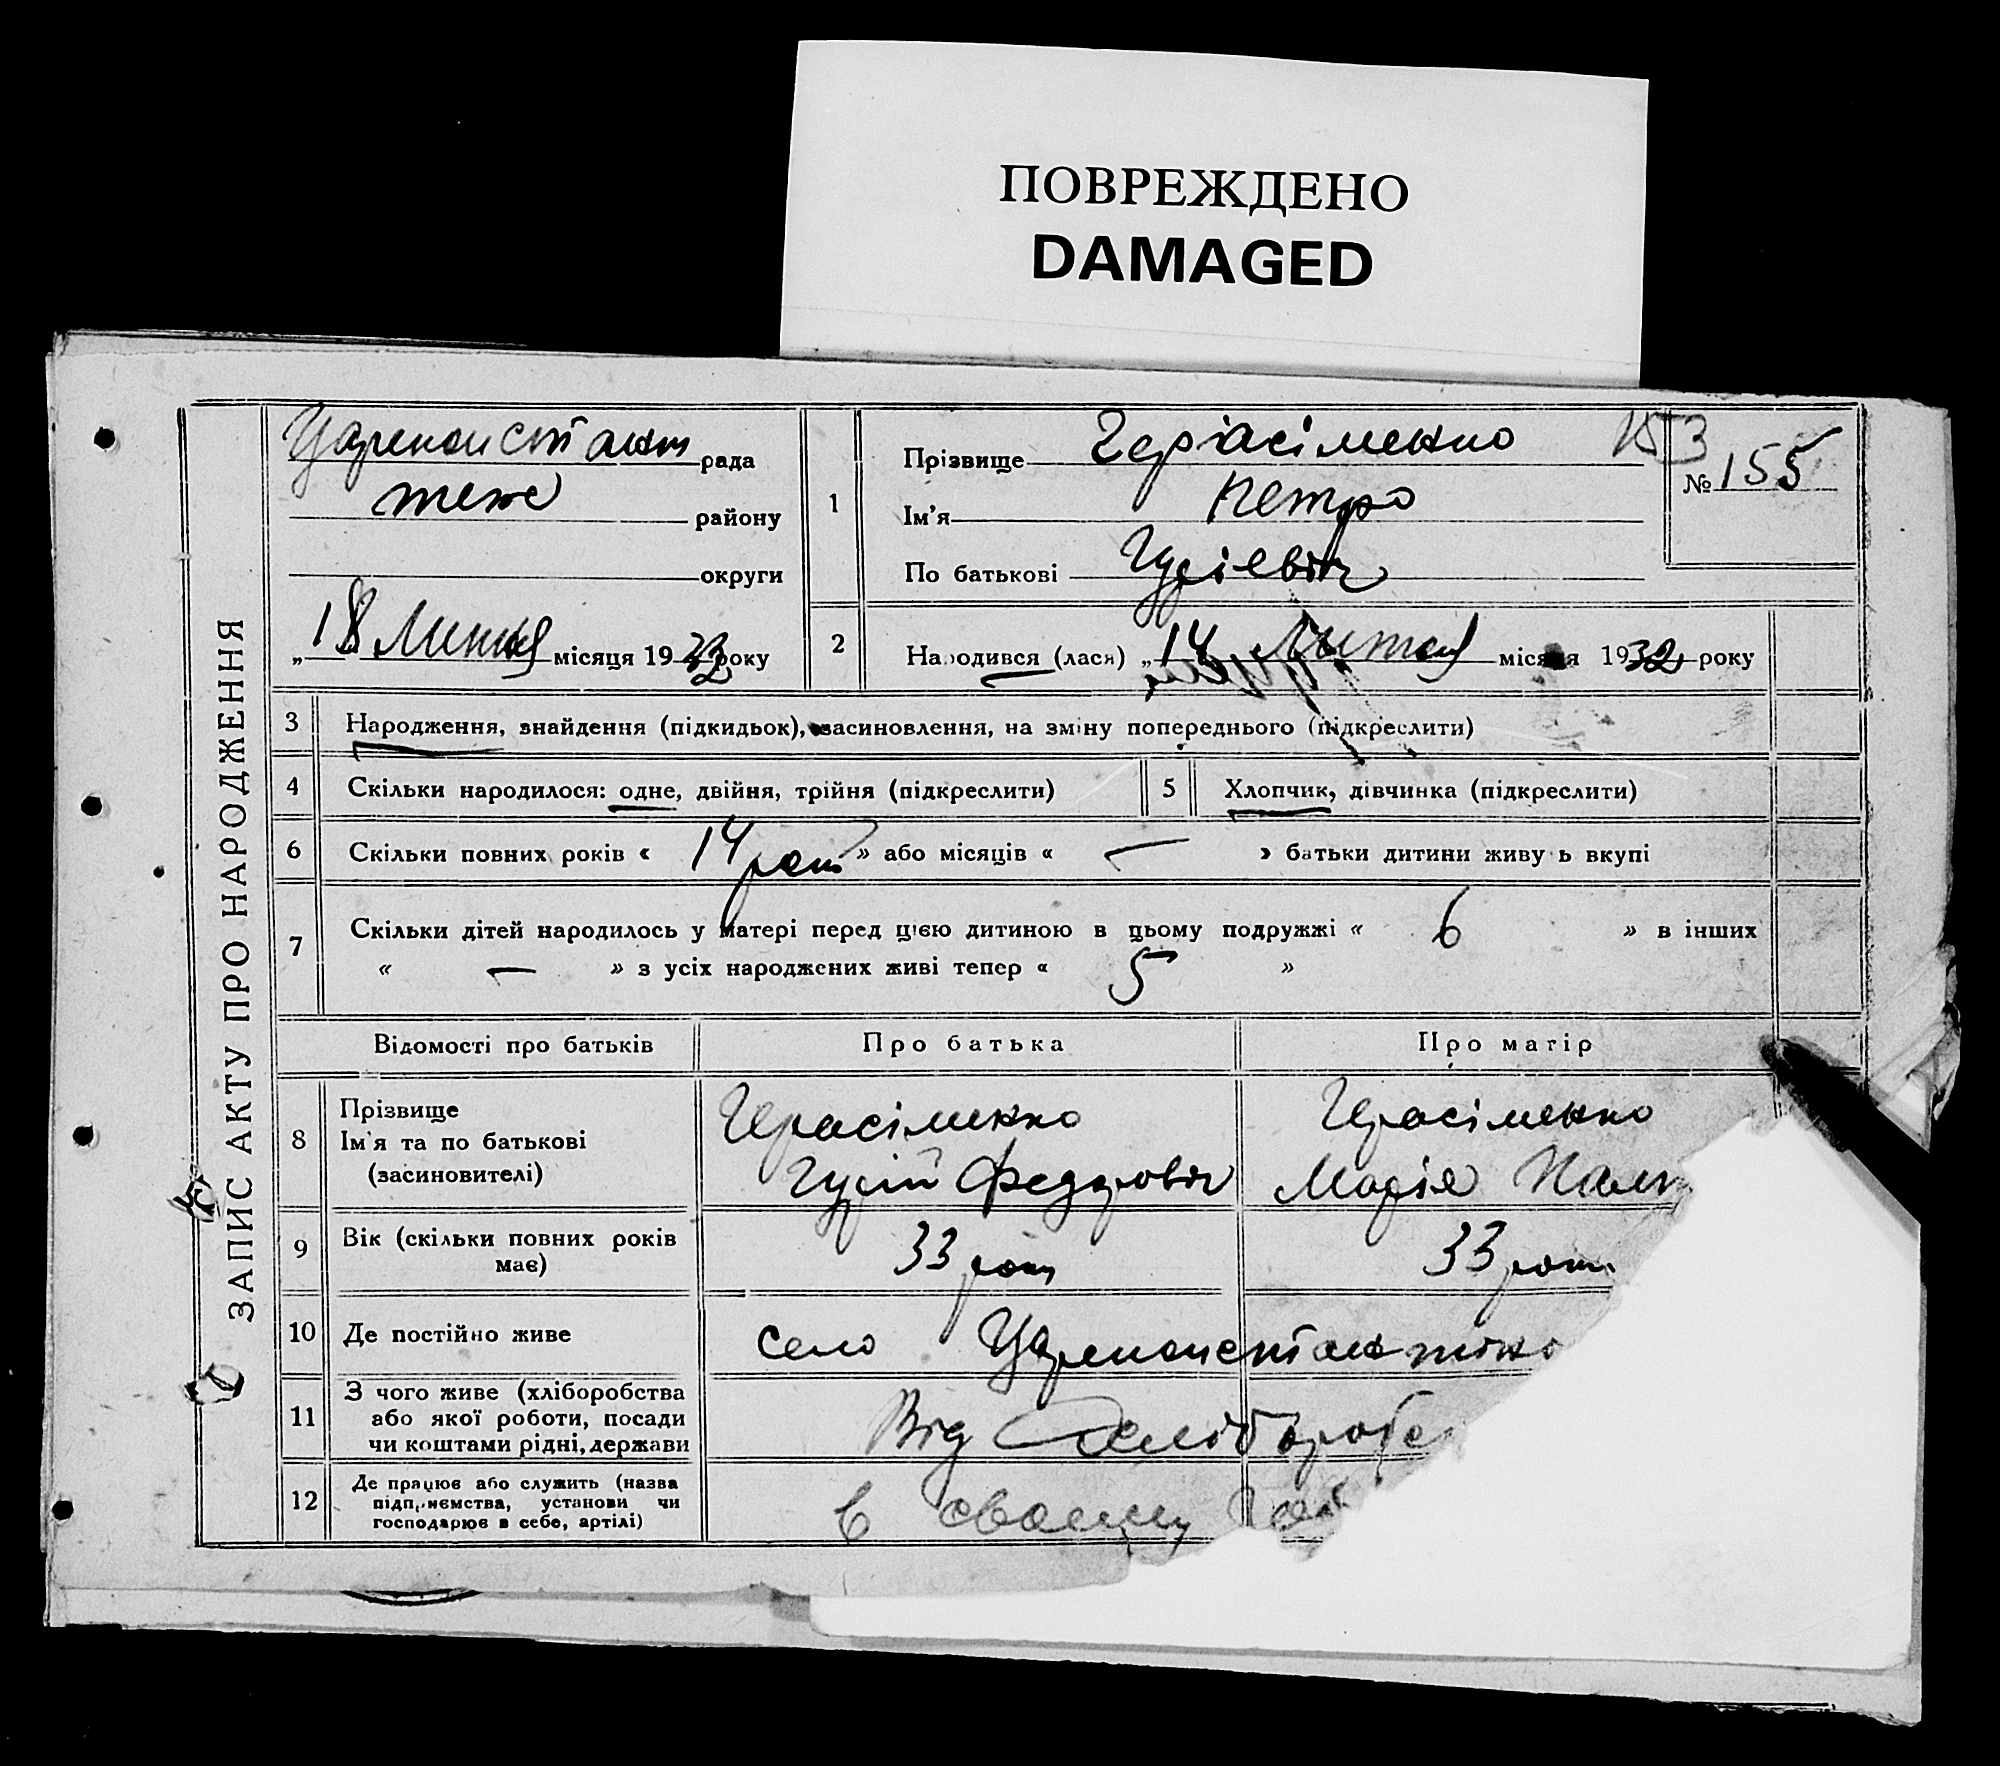 ПОВРЕЖДЕНО
DAMAGED
ЗАПИС АКТУ ПРО НАРОДЖЕННЯ
рада
теж району
округи
„18 Липня місяця 1932 року
1
Прізвище Герасіменко
Ім'я Петро
По батькові Гурієвіч
153
№ 155
2
Народився (лася) „14 місяця 1932 року
3 Народження, знайдення (підкидьок), засиновлення, на зміну попереднього (підкреслити)
4 Скільки народилося: одне, двійня, трійня (підкреслити)
5 Хлопчик, дівчинка (підкреслити)
6 Скільки повних років « 14 рот » або місяців « — » батьки дитини живуть вкупі
7 Скільки дітей народилось у матері перед цією дитиною в цьому подружжі « 6 » в інших
« — » з усіх народжених живі тепер « 5 »
Відомості про батьків Про батька Про матір
8 Прізвище
Ім'я та по батькові
(засиновителі)
Герасіменко
Гурій Федоровіч
Герасіменко
Марія
9 Вік (скільки повних років
має)
33 рот 33 рот
10 Де постійно живе село
11 З чого живе (хліборобства
або якої роботи, посади
чи коштами рідні, держави
Від
12 Де працює або служить (назва
підприємства, установи чи
господарює в себе, артілі)
в своєму